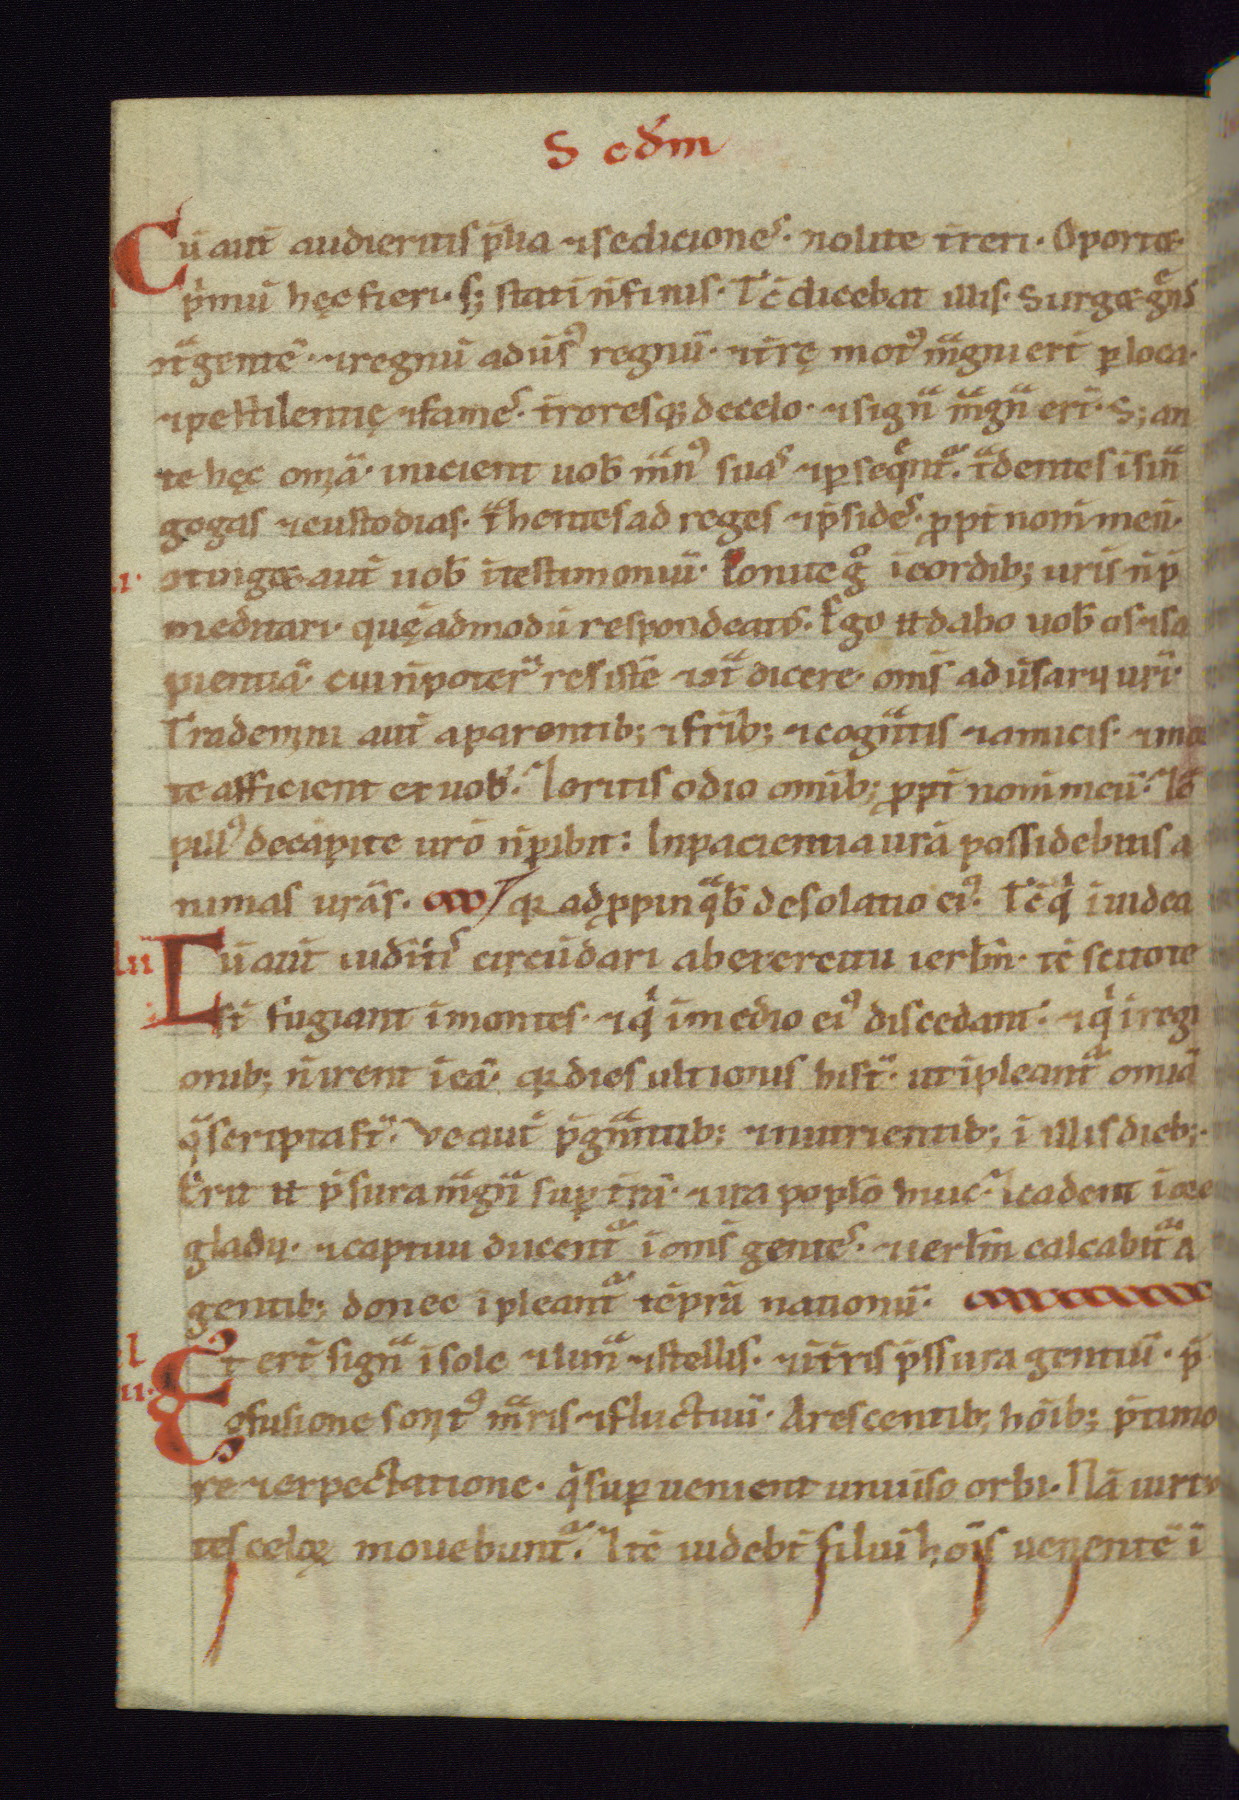 S ecdm
Cū aut̄ audieritis p̄lia ⁊ sediciones. nolite t̄reri. Oportet
p̄mū hęc fieri. s; statī n̄ finis. Tc̄ dicebat illis. Surget gens
ꝯtͣ gentē. ⁊ regnū adūs᷒ regnū. ⁊ t̄rę mot᷒ mͣgni ert̄ ꝑ loca.
⁊ pestilentię ⁊ fames. t̄roresq; de celo. ⁊ signͣ mͣgnͣ er̄t. S; an
te hęc om̄ia. inicient uob̄ mͣn᷒ suas ⁊ ꝑsequent᷑. tͣdentes ī sinͣ
gogas ⁊ custodias. tͣhentes ad reges ⁊ p̄sides. ꝓpt̄ nom̄ meū.
ꝯtinget aut̄ uob̄ ī testimoniū. Ponite gͦ ī cordib; ur̄is n̄ p̄
meditari. quęadmodū respondeatis. Ego n̄ dabo uob̄ os ⁊ sa
pientiā. cui n̄ poter̄ resistē ⁊ ꝯtͣ dicere. om̄s adūsarij ur̄i.
Trademini aut̄ a parentib; ⁊ fr̄ib; ⁊ cognͣtis ⁊ amicis. ⁊ mor
te afficient ex uob̄. ⁊ eritis odio om̄ib; ꝓpt̄ nom̄ meū. ⁊ ca
pill᷒ de capite ur̄o n̄ ꝑibit: In pacientia ur̄a possidebitis a
nimas ur̄as. qꝛ adꝓpinqͣb̄ desolatio ei᷒. Tc̄ qͥ ī iudea
Cū aut̄ uid̄itis circūdari ab exercitu ierl̄m. tc̄ scitote
st̄ fugiant ī montes. ⁊ qͥ ī medio ei᷒ discedant. ⁊ qͥ ī regi
onib; n̄ irent ī eā. qꝛ dies ultionis hi st̄. ut īpleant᷑ om̄ia
q̄ scripta st̄. Ve aut̄ p̄gnͣntib; ⁊ nutrientib; ī illis dieb;.
Erit n̄ p̄ssura mͣgnͣ suꝑ t̄rā. ⁊ ira popl̄o huic. ⁊ cadent ī ore
gladij. ⁊ captiui ducent᷑ ī om̄s gentes. ⁊ ierl̄m calcabit᷑ a
gentib; donec īpleant᷑ tēpr̄a nationū.
Et er̄t signͣ ī sole ⁊ lunͣ ⁊ stellis. ⁊ ī t̄ris p̄ssura gentiū. p̄
ꝯfusione sonit᷒ mͣris ⁊ fluctuū. Arescentib; hoīb; p̄ timo
re ⁊ expectatione. q̄ suꝑuenient uniūso orbi. Nā uirtu
tes celoꝝ mouebunt᷑. ⁊ tc̄ uidebt̄ filiū hoīs uenientē ī